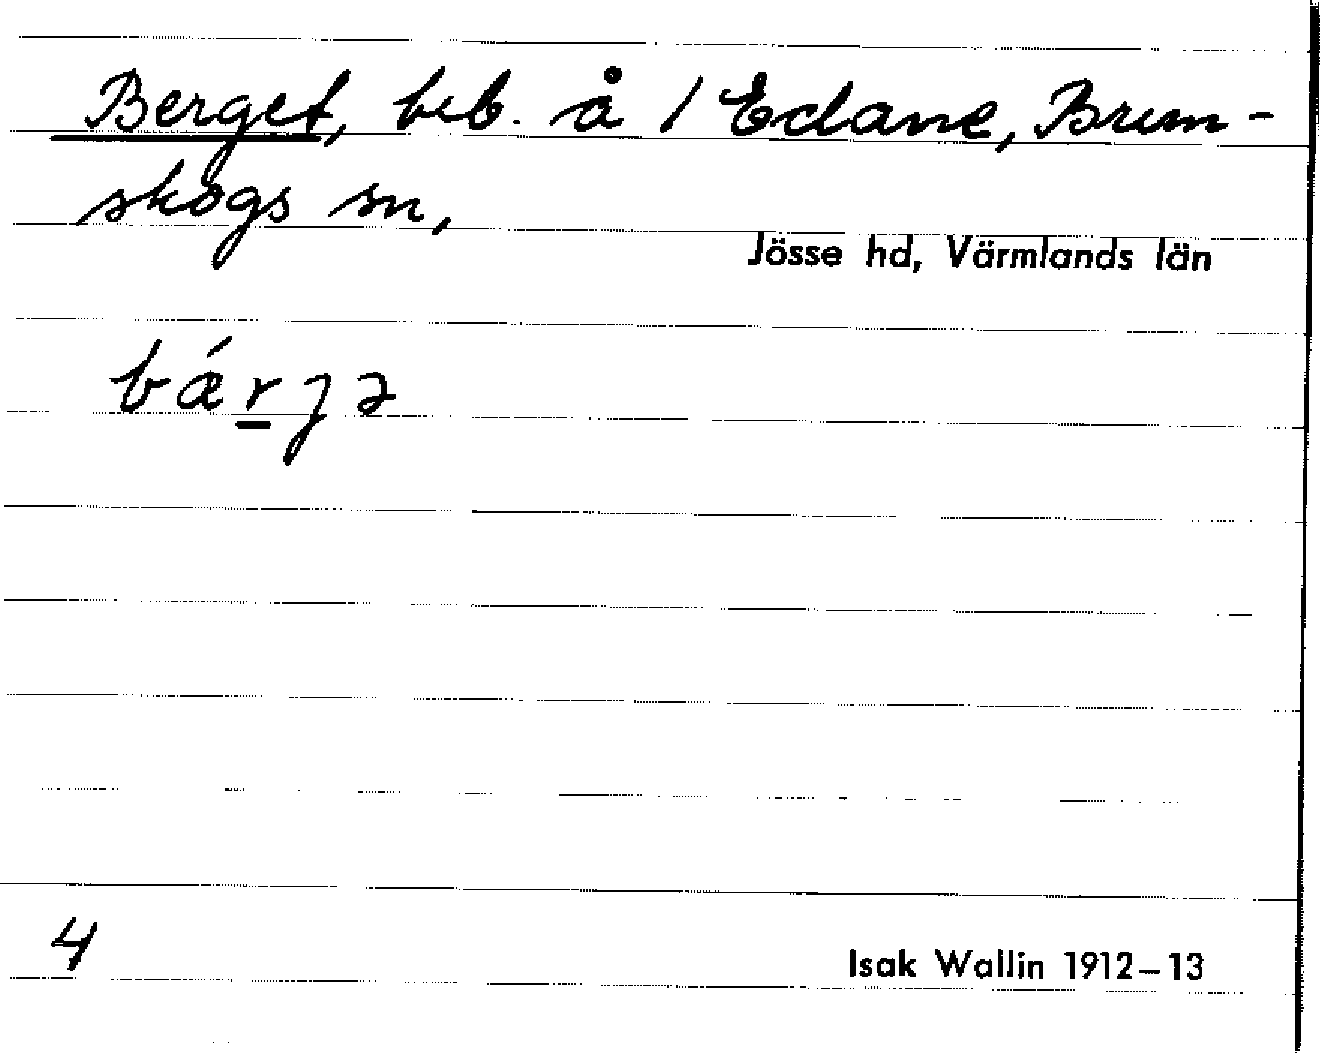 Berget, beb. å 1 Edane, Brun-
skogs sn,
Jösse hd, Värmlands län
bǽr̲ȷə
4
Isak Wallin 1912–13